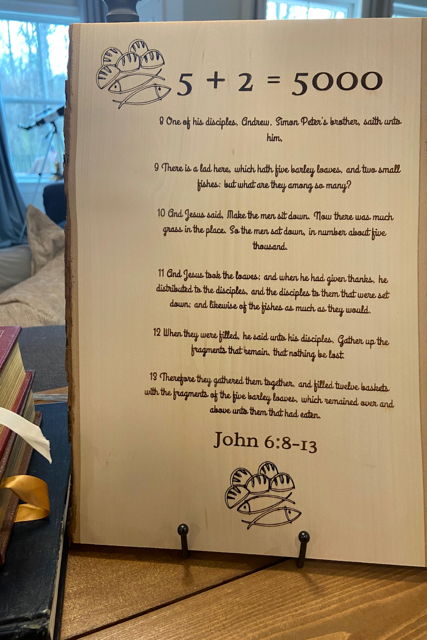 5 + 2 = 5000
8 One of his disciples, Andrew, Simon Peter's brother, saith unto
him,
9 There is a lad here, which hath five barley loaves, and two small
fishes: but what are they among so many?
10 And Jesus said, Make the men sit down. Now there was much
grass in the place. So the men sat down, in number about five
thousand.
11 And Jesus took the loaves; and when he had given thanks, he
distributed to the disciples, and the disciples to them that were set
down; and likewise of the fishes as much as they would.
12 When they were filled, he said unto his disciples, Gather up the
fragments that remain, that nothing be lost.
13 Therefore they gathered them together, and filled twelve baskets
with the fragments of the five barley loaves, which remained over and
above unto them that had eaten.
John 6:8-13